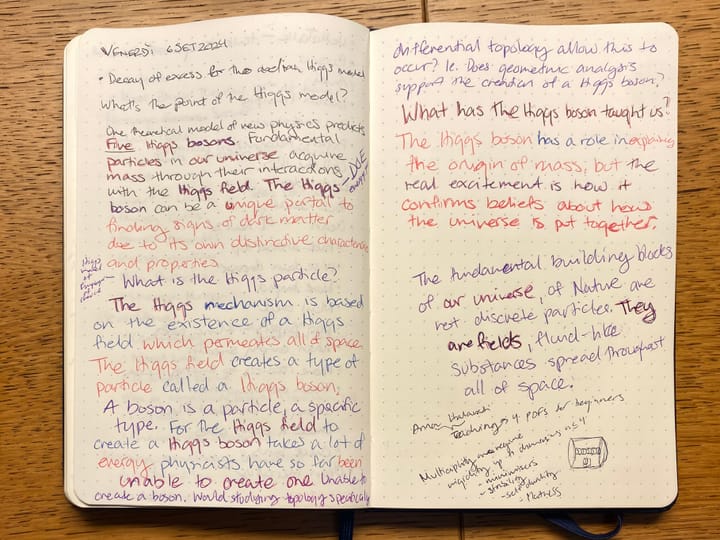 VENERDÌ 6 SET 2024
• Decay of excess for the Higgs model
What's the point of the Higgs model?
One theoretical model of new physics predicts
Five Higgs bosons. Fundamental
particles in our universe acquire
mass through their interactions
with the Higgs field. The Higgs
— DUE
boson can be a unique portal to
finding signs of dark matter
due to its own distinctive characteristics
and properties
Higgs
model
of
— What is the Higgs particle?
The Higgs mechanism is based
on the existence of a Higgs
field which permeates all of space.
The Higgs field creates a type of
particle called a Higgs boson.
A boson is a particle, a specific
type. For the Higgs field to
create a Higgs boson takes a lot of
energy physicists have so far been
unable to create one unable to
create a boson. Would studying topology specifically
differential topology allow this to
occur? Ie. Does geometric analysis
support the creation of a Higgs boson?
What has the Higgs boson taught us?
The Higgs boson has a role in explaining
the origin of mass, but the
real excitement is how it
confirms beliefs about how
the universe is put together.
The fundamental building blocks
of our universe, of Nature are
not discrete particles. They
are fields, fluid-like
substances spread throughout
all of space.
Teachings 4 PDFs for beginners
Multiplicity one regime
rigidity up to dimension n ≤ 4
- minimisers
- stability
- self duality